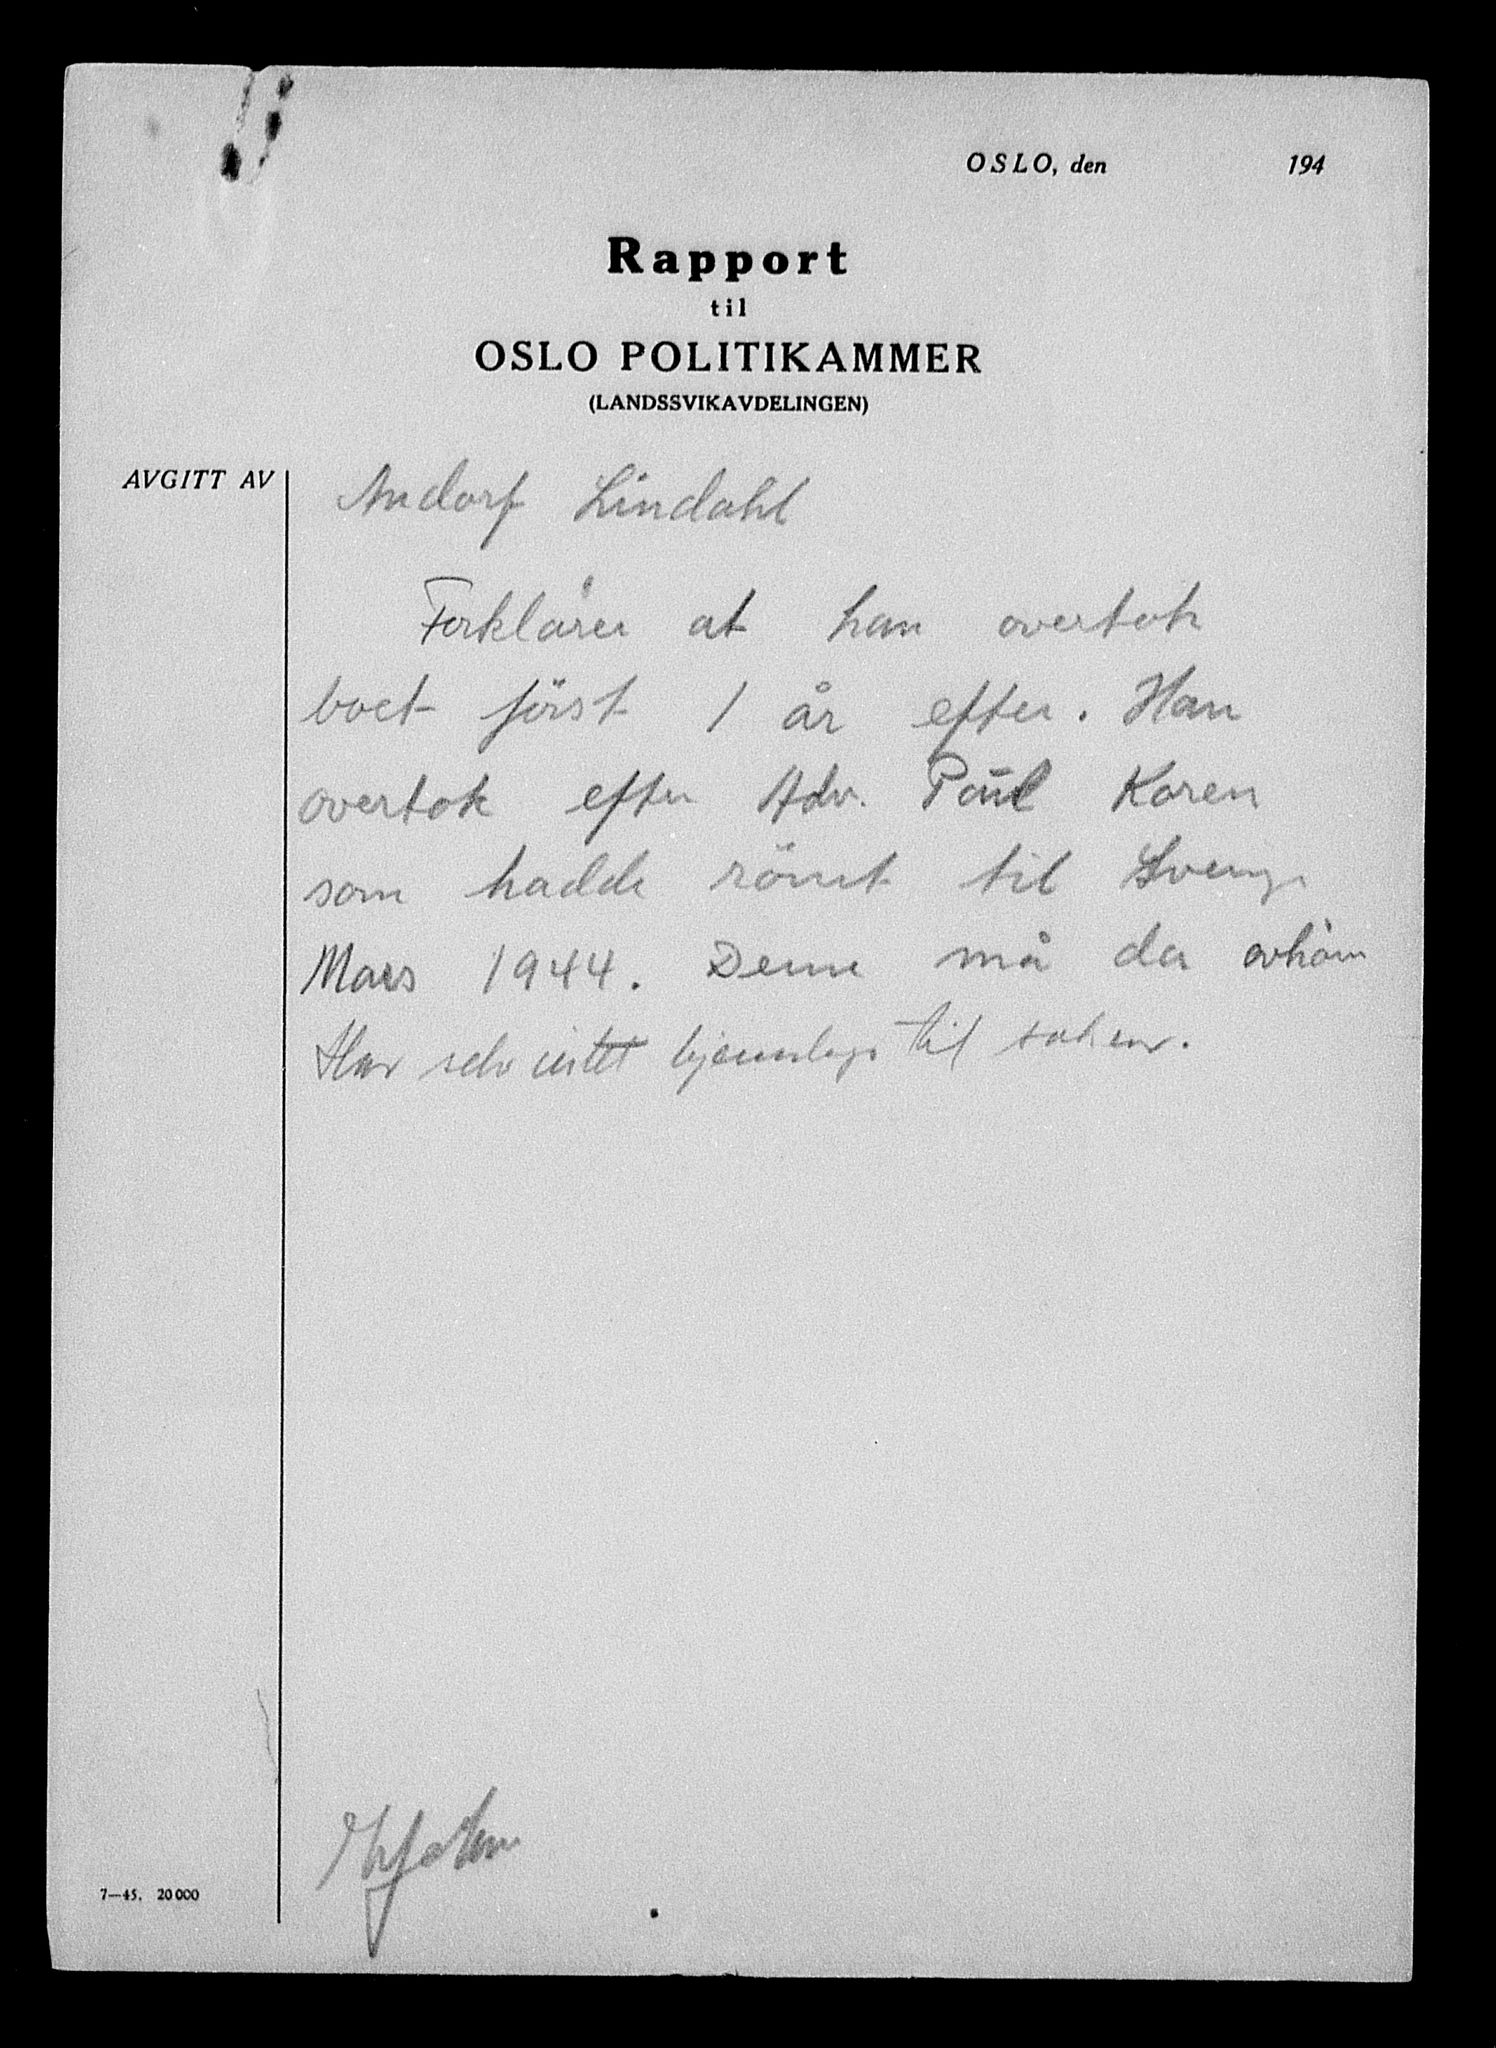 OSLO, den 194
Rapport
til
OSLO POLITIKAMMER
(LANDSSVIKAVDELINGEN)
AVGITT AV
Andorf Lindahl
Forklårer at han overtok
boet först 1 år efter. Han
overtok efter Adv. Paul Koren
som hadde römt til
Mars 1944. Denne må da avhör
Har selv intet kjennskap til saken.
7—45. 20 000